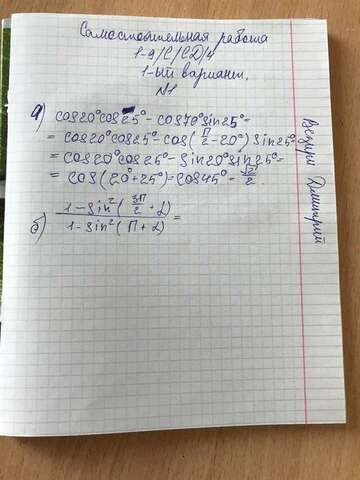 Самостоятельная работа
1-9/С/(СД)/4
1-ый вариант.
№1
а) cos20°cos25° - cos70°sin25° =
= cos20°cos25° - cos(π/2 - 20°) sin25° =
= cos20°cos25° - sin20°sin25° =
= cos(20°+25°) = cos45° = √2/2.
б) 1 - sin²(3π/2 + α) / 1 - sin²(π + α) =
Дмитрий